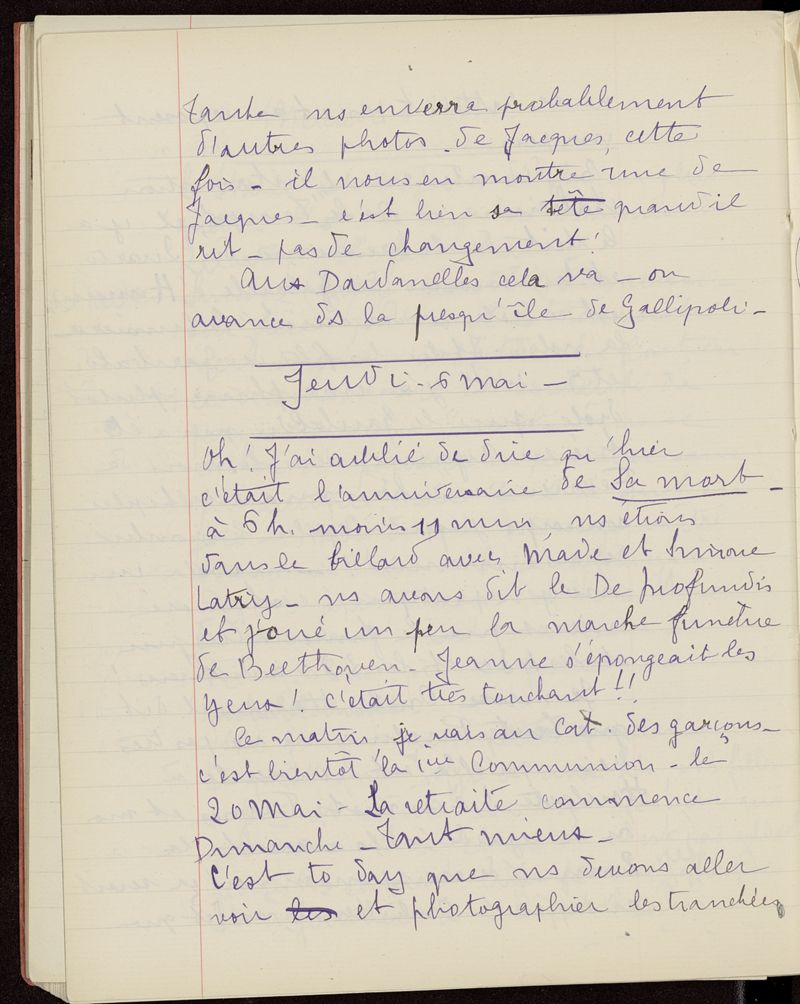 Tante ns enverra probablement
d'autres photos de Jacques, cette
fois - il nous en montre une de
Jacques - c'est bien sa tête quand il
rit - pas de changement!
Aux Dardanelles cela va - on
avance ds la presqu'île de Gallipoli -
Jeudi - 6 mai -
Oh! J'ai oublié de dire qu'hier
c'était l'anniversaire de Sa mort -
à 6 h. moins 11 min, ns étions
dans le billard avec Made et Simone
Latry - ns avons dit le De Profundis
et joué un peu la marche funèbre
de Beethoven - Jeanne s'épongeait les
yeux! c'était très touchant!!
Ce matin je vais au Cat. des garçons -
c'est bientôt la 1ière Communion - le
20 Mai - La retraite commence
Dimanche - Tant mieux -
C'est to day que ns devons aller
voir les et photographier les tranchées